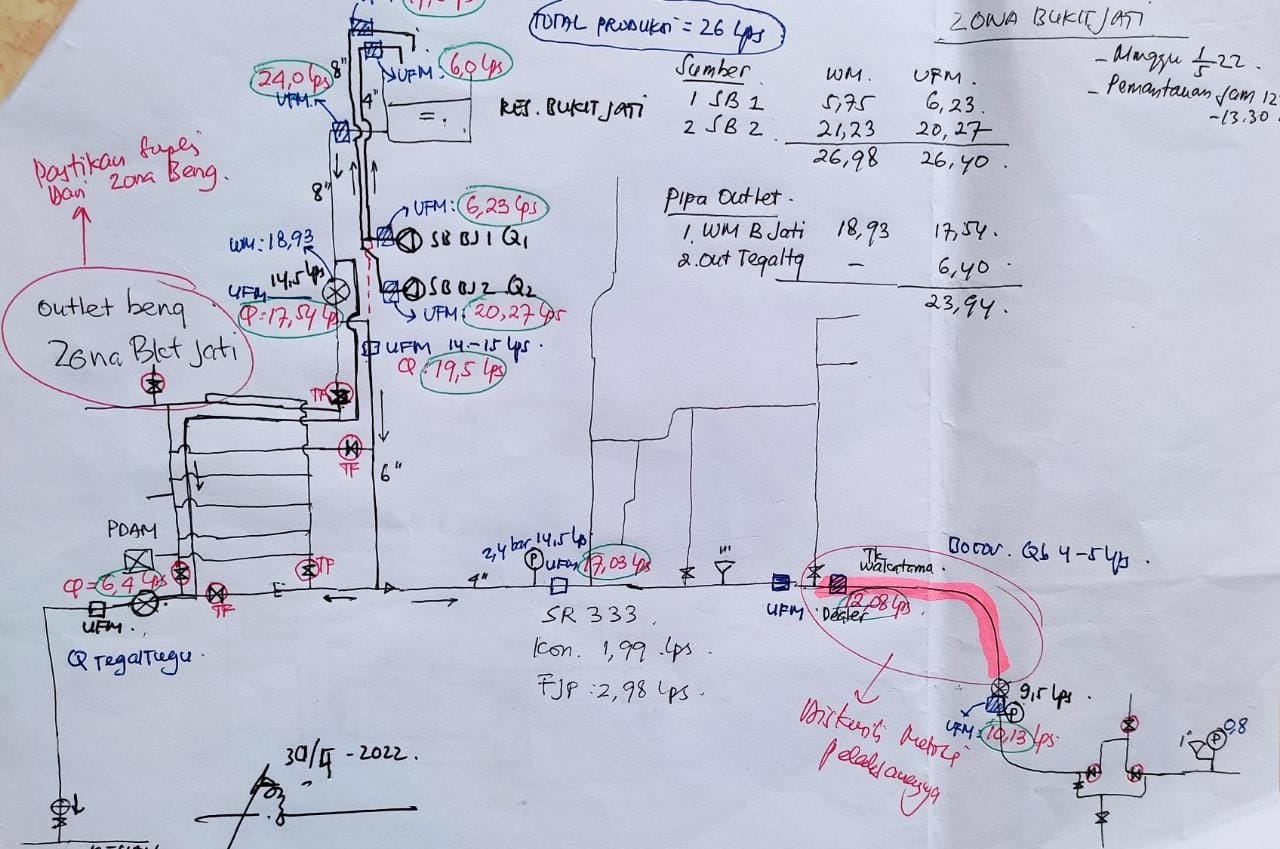 TOTAL PRODUKSI = 26 Lps
ZONA BUKIT JATI
- Minggu 1/5 22.
- Pemantauan Jam 12
- 13.30
Sumber WM. UFM.
1 SB 1 5,75 6,23.
2 SB 2 21,23 20,27
26,98 26,40.
Pipa Outlet.
1. WM B Jati 18,93 17,54.
2. Out Tegaltg - 6,40
23,94.
24,0 lps
UFM.
8"
4"
UFM:
6,0 lps
RES. BUKIT JATI
Pastikan Suplei
Dari Zona Beng.
8"
UFM: 6,23 lps
SB BJ 1 Q1
WM: 18,93
14,5 lps
UFM
Q: 17,54 lps
SB BJ 2 Q2
UFM: 20,27 lps
UFM 14-15 lps.
Q: 19,5 lps
Outlet beng
Zona Bkt Jati
TF
TF
6"
PDAM
Q= 6,4 lps
TF
TF
UFM.
Q Tegaltugu.
4"
2,4 bar 14,5 lps
P
UFM
17,03 lps
SR 333
Kon. 1,99 lps.
FJP: 2,98 lps.
1"
UFM
Tk.
Wakatama.
Dealer
12,08 lps
Bocor. Qb 4-5 lps.
9,5 lps.
P
UFM: 10,13 lps
Diskusi Metode
pelaksanaannya
1"
P
0,8
30/4 - 2022.